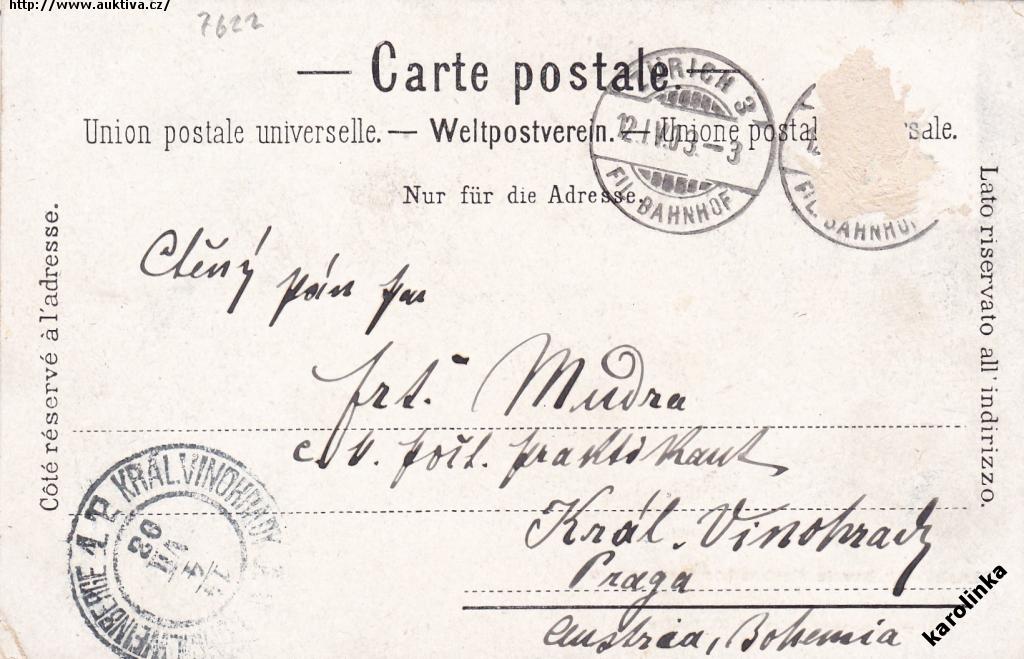 http://www.auktiva.cz/
7622
— Carte postale. —
Union postale universelle. — Weltpostverein. — Unione postal sale.
Nur für die Adresse.
ZÜRICH 3
12.IV.03.-3
FIL. BAHNHOF
FIL. BAHNHOF
Côté réservé à l'adresse.
Lato riservato all' indirizzo.
Ctěný pán pan
frt. Mudra
c. k. pošt. praktikant
Král. Vinohrady
Praga
Austria, Bohemia
KRÁL. VINOHRADY
karolinka